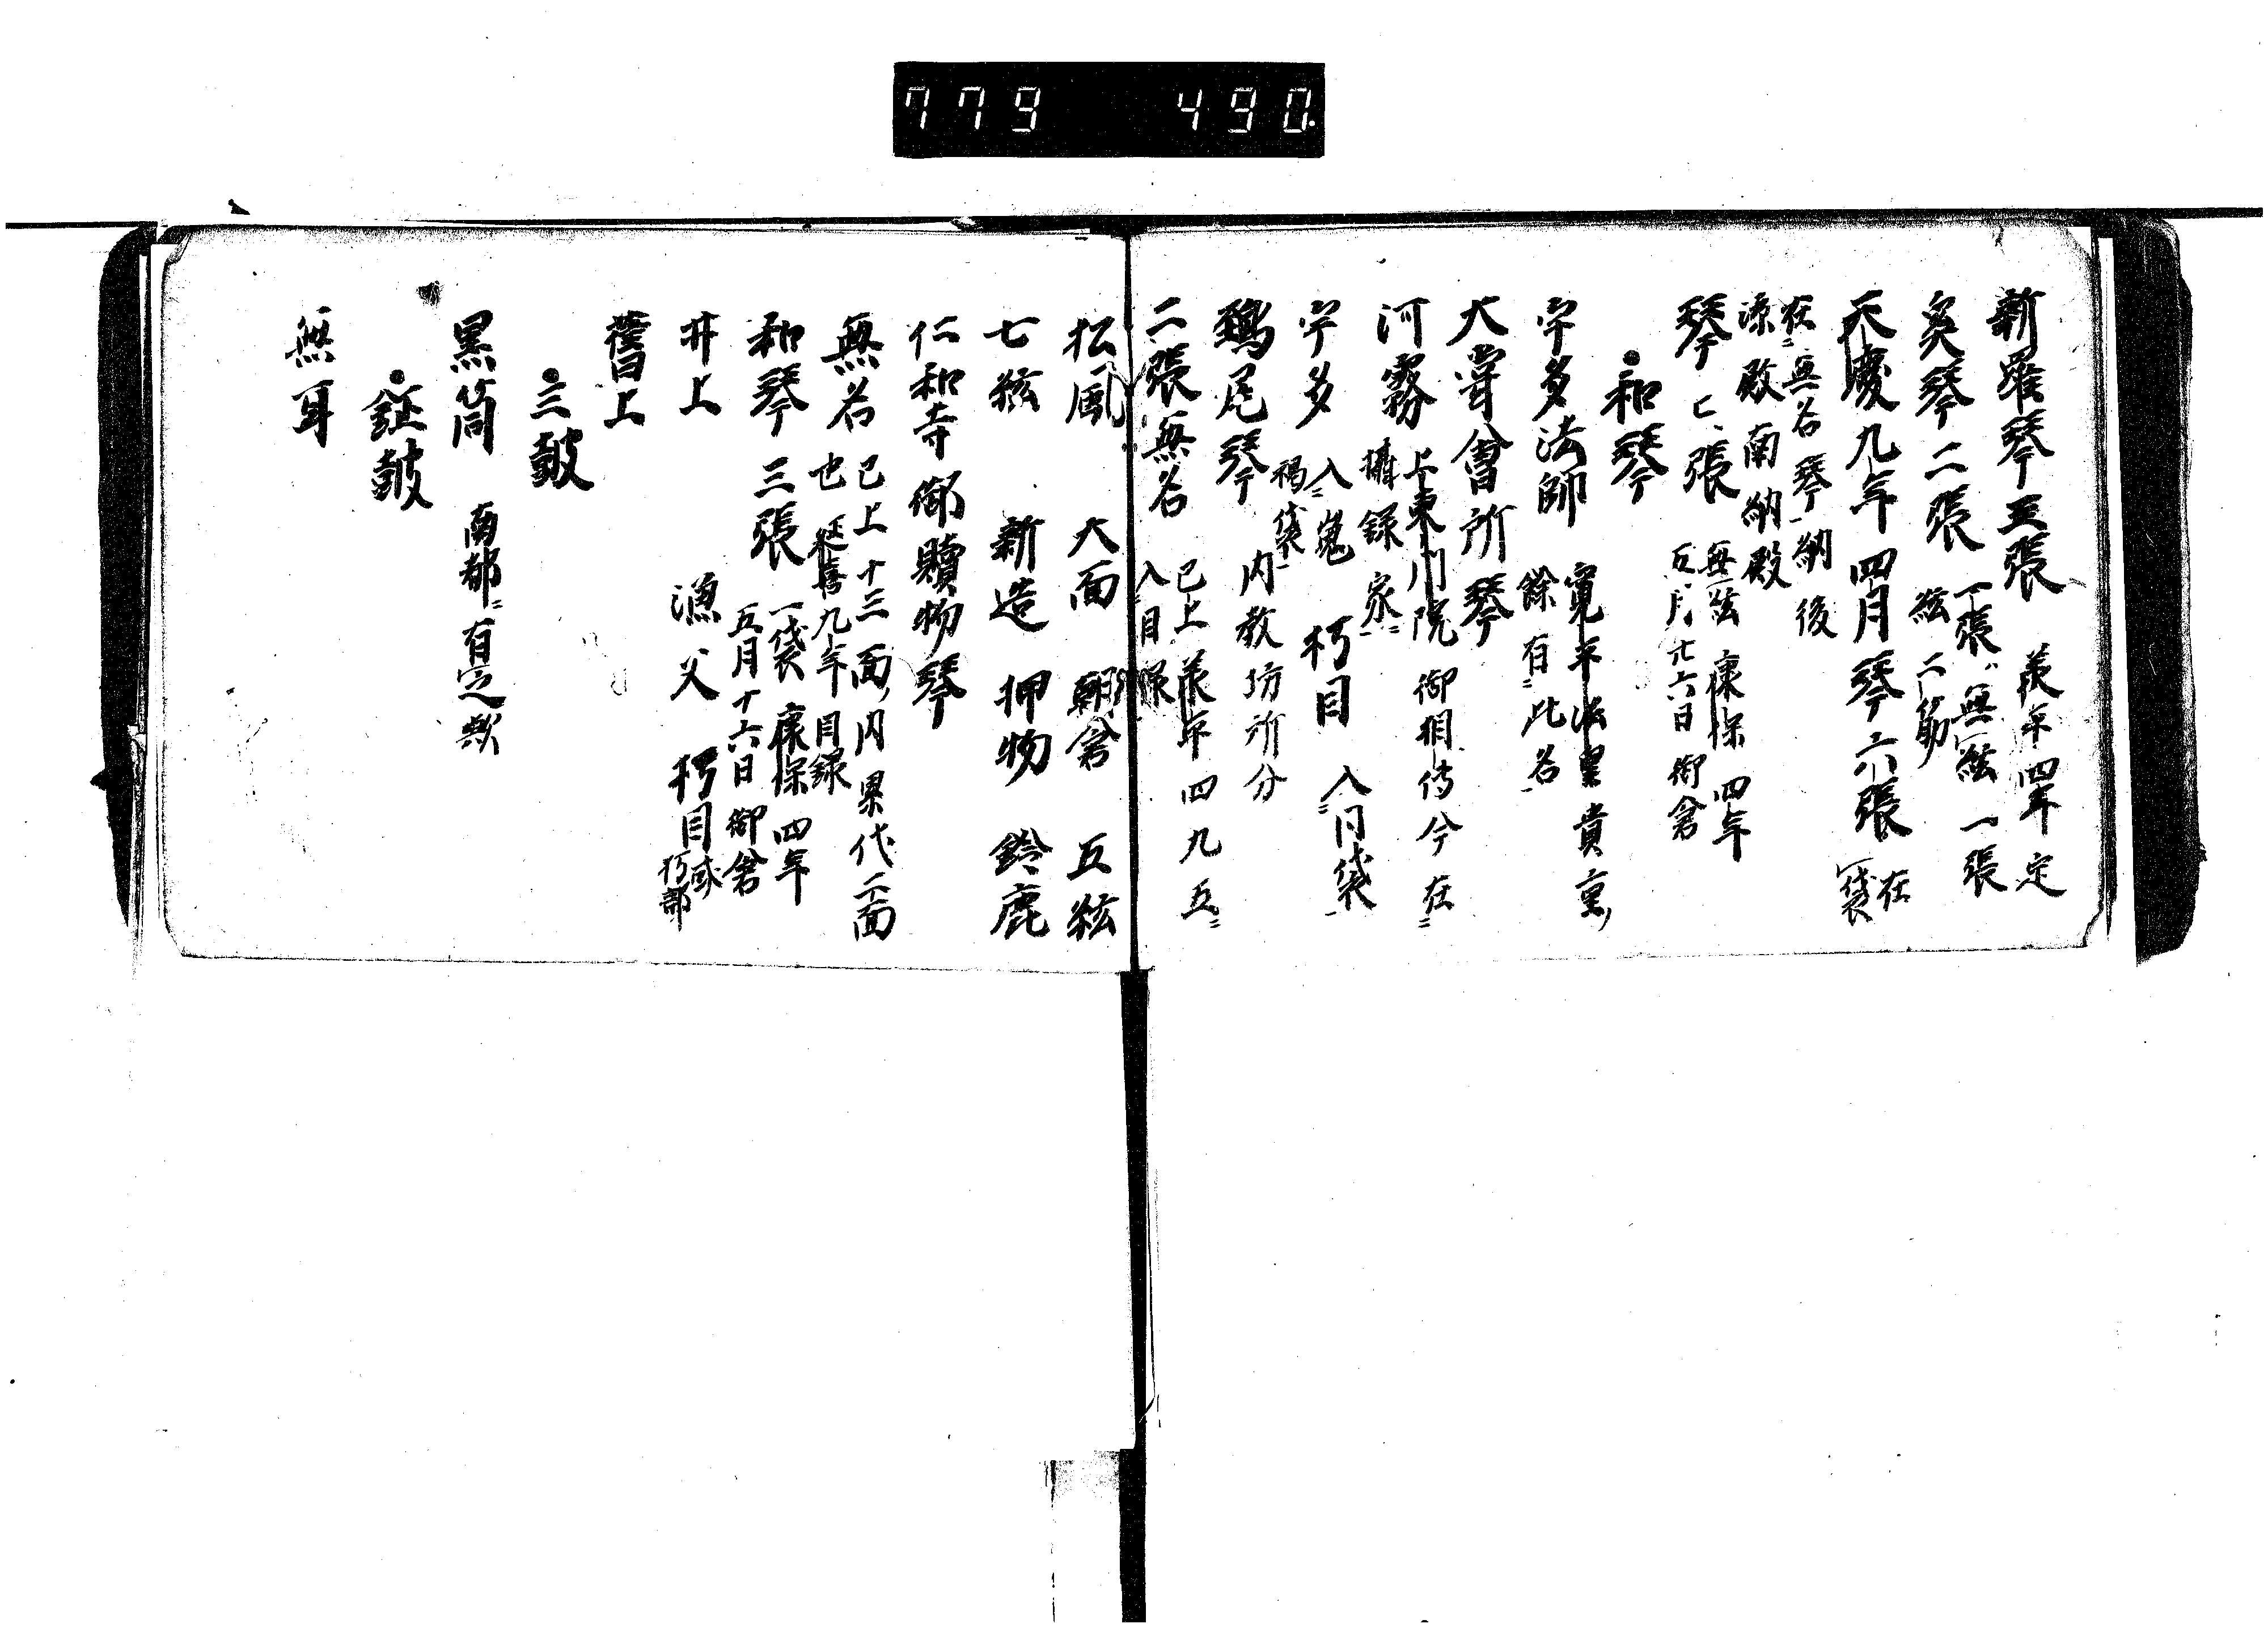 779 490
新羅琴三張 羡年四年定
一張、無一絃 一張
奚琴二張 絃二筋
天慶九年四月琴六張 在一袋
在無名琴納後
涼殿南納殿
琴七張 無一絃 康保四年
五月十六日御倉
・和琴
宇多法師 寛平法皇貴重
餘有此名
大嘗會所琴
河霧 上東門院御相傳今在
攝録家
宇多 入嵬 朽目 入同袋
褐袋
鵄尾琴 内教坊所分
二張無名 已上羡年四九五
入目録
松風 大面 朝倉 五絃
七絃 新造 押物 鈴鹿
仁和寺御贖物琴
無名 已上十三面、内累代二面
也 延喜九年目録
和琴三張 一袋 康保四年
五月十六日御倉
井上 漁父 朽目 或朽部
舊上
・三鼓
黒筒 南都有之歟
・鉦鼓
無耳